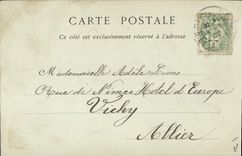 CARTE POSTALE
Ce côté est exclusivement réservé à l'adresse
Mademoiselle Adèle Lions
Rue de Nîmes Hôtel d'Europe
Vichy
Allier